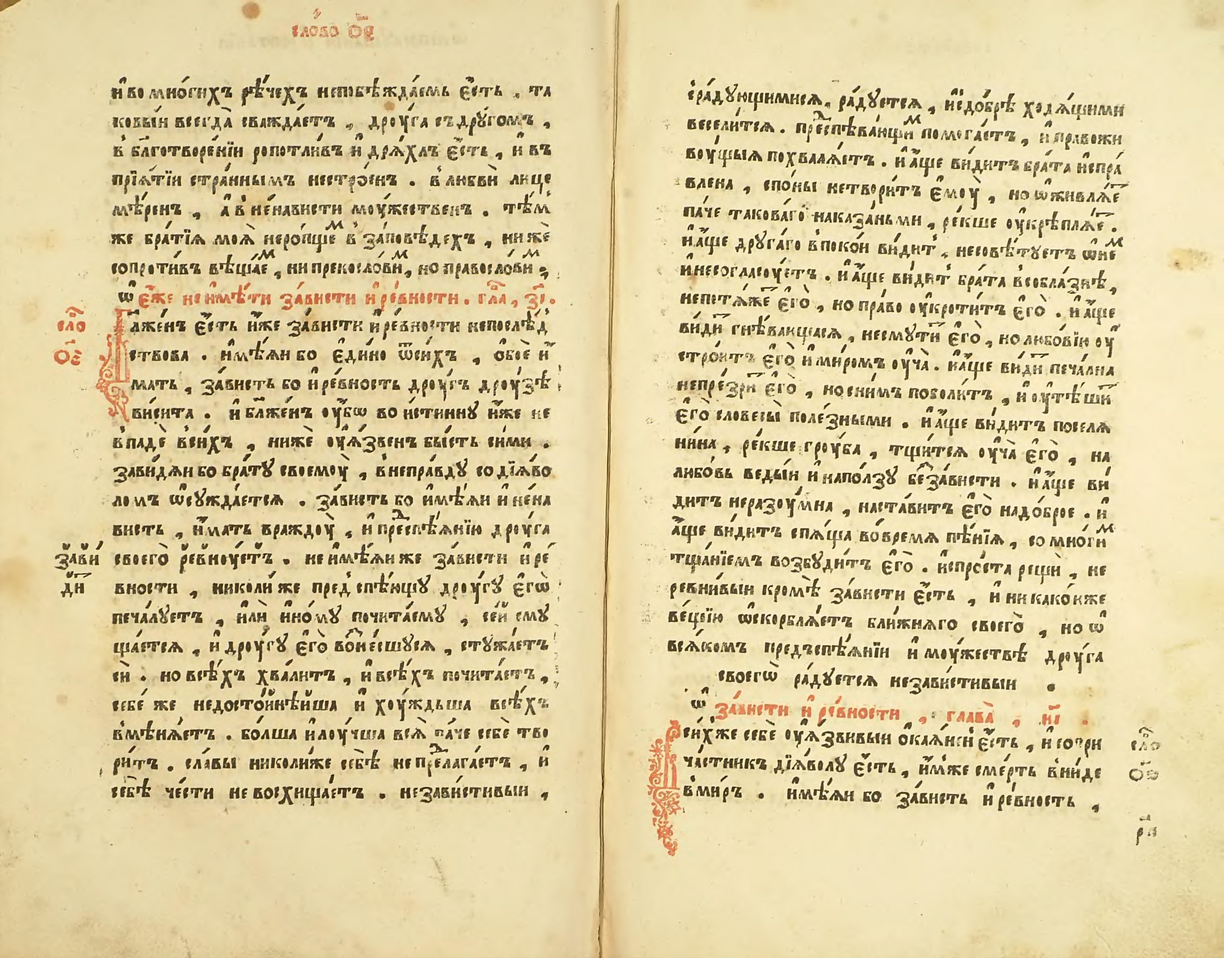 слово ѻ҃є
и҆ во мно́гихъ рѣ́чехъ непобѣжда́емь є҆́сть , та
ковы́и всегда̀ сважда́етъ , дрꙋ́га съ дрꙋ́гомъ ,
в бл҃готворе́нїи ропотли́въ и҆ дрѧ́хлъ є҆́сть , и҆ въ
прїѧ́тїи стра́ннымъ нестро́енъ . в любвѝ лице
мѣ́ренъ , а҆ в не́нависти мꙋ́жественъ . тѣ́м
же бра́тїѧ моѧ̀ неро́пщем в за́повѣдехъ , ни же
сопроти́въ вѣща́ем , ни прекосло́вим , но правосло́вим ,
ѡ є҆́же не и҆мѣ́ти за́висти и҆ ре́вности . гла , з҃і .
сло
ѻ҃є
Бл҃же́нъ є҆́сть и҆́же за́висти и҆ ре́вности непослѣ́д
ствова . и҆мѣ́ѧи бо є҆ди́но ѿ си́хъ , ѻ҆боѐ и҆
мать , за́висть бо и҆ ре́вность дрꙋ́гъ дрꙋ́зѣ
ви́сита . и҆ бл҃же́нъ ᲂу҆́бѡ во и́стиннꙋ и҆́же не
впадѐ в си́хъ , нижѐ ᲂу҆́ѧзвенъ бы́сть си́ми .
зави́дѧи бо бра́тꙋ своемꙋ̀ , в непра́вдꙋ со дїѧ́во
ломъ ѡ҆сꙋжда́етсѧ . за́висть бо и҆мѣ́ѧи и҆ не́на
висть , и҆́мать враждꙋ̀ , и҆ преспѣ́ѧнїю дрꙋ́га
зави
ди
своего̀ ревнꙋ́етъ . не и҆мѣ́ѧи же за́висти и҆ ре́
вности , николи́ же предспѣ́ющꙋ дрꙋ́гꙋ є҆гѡ̀
печа́лꙋетъ , и҆лѝ и҆но́мꙋ почита́емꙋ , се́и смꙋ
ща́етсѧ , и҆ дрꙋ́гꙋ є҆го̀ возне́сшꙋсѧ , стꙋжа́етъ
си . но всѣ́хъ хва́литъ , и҆ всѣ́хъ почита́етъ ,
себе́ же недосто́йнѣйша и҆ хꙋ́ждьша всѣ́хъ
вмѣнѧ́етъ . бо́лша и҆ лꙋ́чша всѧ̀ па́че себѐ тво
ри́тъ . сла́вы николи́же себѣ̀ не прелага́етъ , и҆
себѣ̀ че́сти не восхища́етъ . незави́стивыи ,
с ра́дꙋющимисѧ , ра́дꙋетсѧ , и҆ с до́брѣ ходѧ́щими
весели́тсѧ . преспѣва́ющим помога́етъ , и҆ право жи
вꙋ́щыѧ похвалѧ́етъ . и҆ а҆́ще ви́дитъ бра́та испра́
влена , спо́ны не твори́тъ є҆мꙋ̀ , но ѡ҆живлѧ́ет
па́че такова́го наказа́ньми , ре́кше ᲂу҆крѣплѧ́ет .
и҆ а҆́ще дрꙋга́го в поко́и ви́дит , не совѣ́тꙋетъ ѡ҆ нем
и҆ не согласꙋ́етъ . и҆ а҆́ще ви́дит бра́та в собла́знѣ ,
не потѧ́жет є҆го̀ , но пра́во ᲂу҆кроти́тъ є҆го̀ . и҆ а҆́ще
ви́дит гнѣ́вающасѧ , не смꙋти́т є҆го̀ , но любо́вїю ᲂу҆
стро́итъ є҆го̀ и҆ ми́ромъ ᲂу҆ча̀ . и҆ а҆́ще ви́дит печа́лна
не пре́зрит є҆го̀ , но с ни́мъ поболи́тъ , и҆ ᲂу҆тѣ́шит
є҆го̀ словесы̀ поле́зными . и҆ а҆́ще ви́дитъ поселѧ́
нина , ре́кше грꙋ́ба , тщи́тсѧ ᲂу҆ча̀ є҆го̀ , на
любо́вь веды́и и҆ на по́лзꙋ беза́висти . и҆ а҆́ще ви́
дитъ неразꙋ́мна , наста́витъ є҆го̀ на до́брое . и҆
а҆́ще ви́дитъ спѧ́ща во вре́мѧ пѣ́нїѧ , со мно́гим
тща́нїемъ возбꙋ́дитъ є҆го̀ . и спро́ста рещѝ , не
ревни́выи кромѣ̀ за́висти є҆́сть , и҆ ни како́и же
ве́щїю ѡ҆скорблѧ́етъ бли́жнѧго своего̀ , но ѡ҆
всѧ́комъ предъспѣ́ѧнїи и҆ мꙋ́жествѣ дрꙋ́га
своегѡ̀ ра́дꙋетсѧ незави́стивыи .
ѡ за́висти и҆ ре́вности , глава̀ , и҃і .
сло
ѻ҃ѕ
Си́хже себѐ ᲂу҆ѧзви́выи ѻ҆каѧ́нси є҆́сть , и҆ сопри
ча́стникъ дїѧ́волꙋ є҆́сть , и҆́мже сме́рть вни́де
в миръ . и҆мѣ́ѧи бо за́висть и҆ ре́вность ,